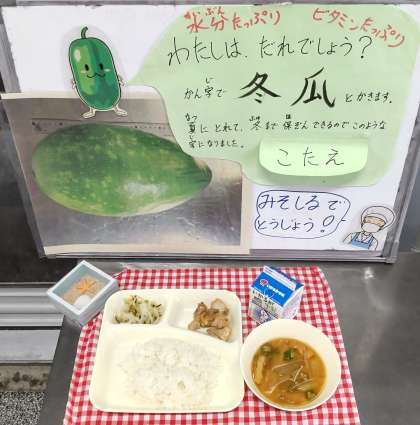 水分たっぷり
ビタミンたっぷり
わたしは、だれでしょう？
かん字で 冬瓜 とかきます。
夏にとれて、冬まで保ぞんできるのでこのような
字になりました。
こたえ
みそしるで
とうじょう！